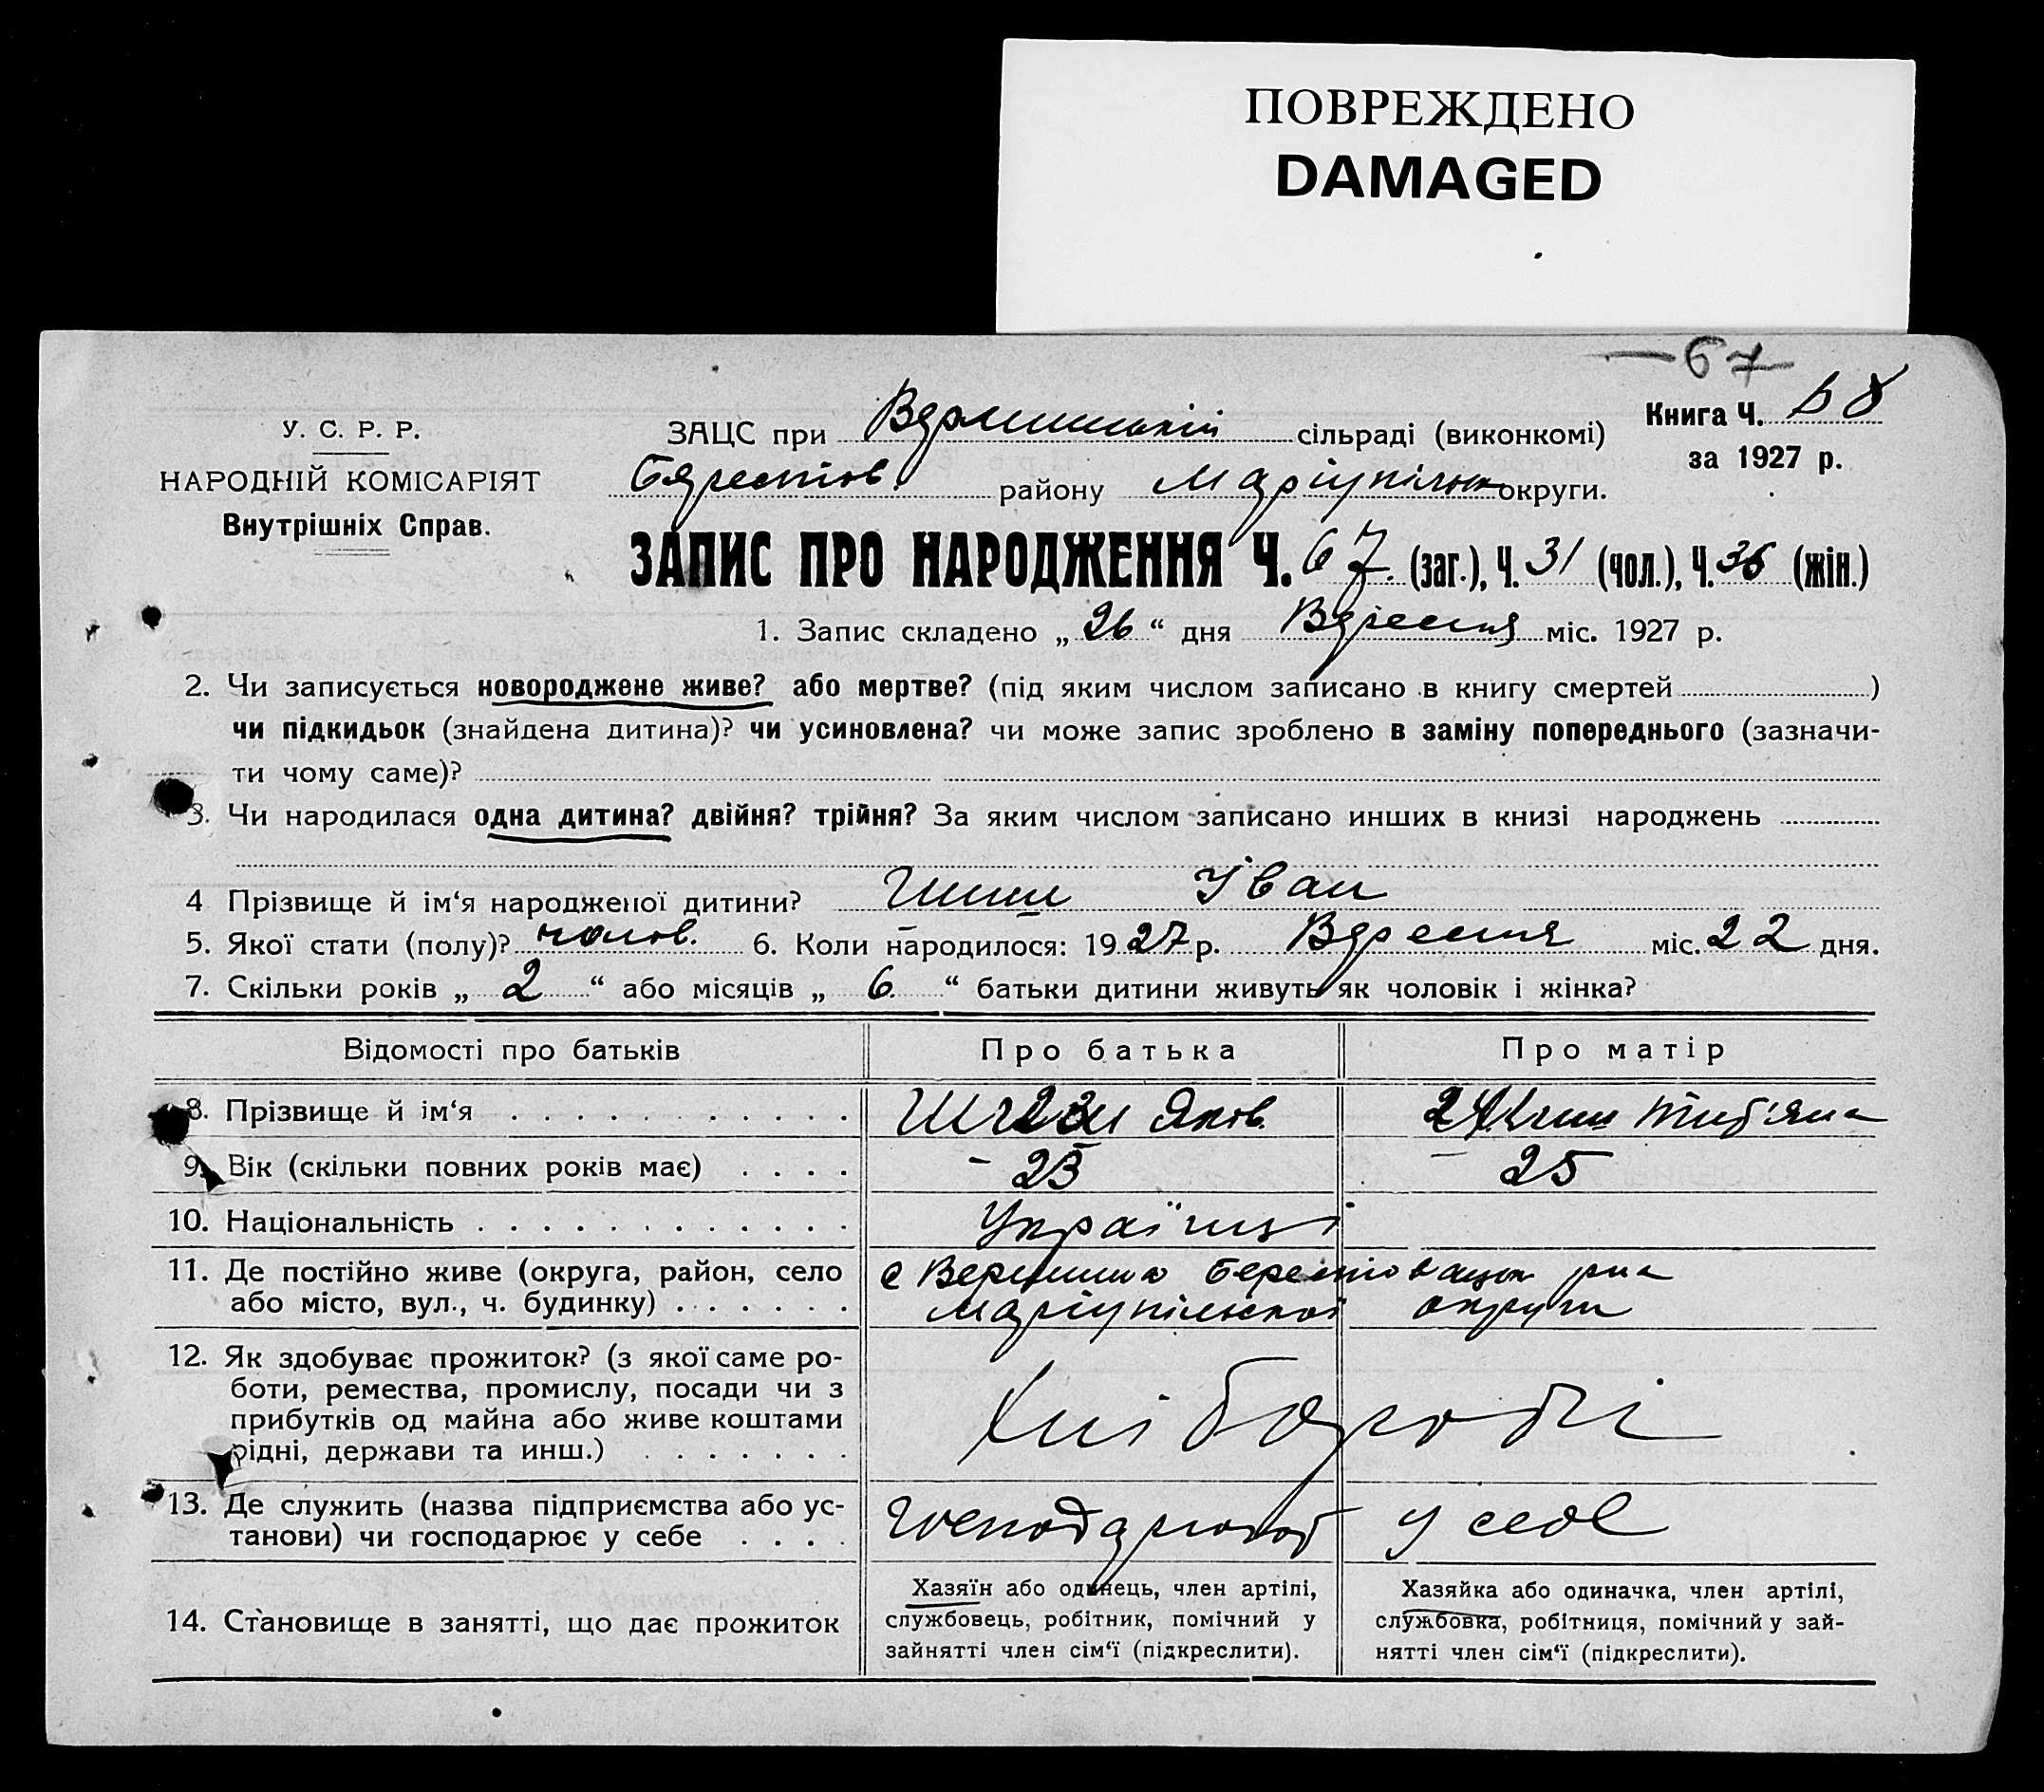 ПОВРЕЖДЕНО
DAMAGED
67
У. С. Р. Р.
НАРОДНІЙ КОМІСАРІЯТ
Внутрішніх Справ.
ЗАЦС при сільраді (виконкомі)
Книга Ч.
за 1927 р.
району Маріупільск округи.
ЗАПИС ПРО НАРОДЖЕННЯ Ч. 67. (заг.), Ч. 31 (чол.), Ч. 36 (жін.)
1. Запис складено „ 26 “ дня Вересня міс. 1927 р.
2. Чи записується новороджене живе? або мертве? (під яким числом записано в книгу смертей )
чи підкидьок (знайдена дитина)? чи усиновлена? чи може запис зроблено в заміну попереднього (зазначи-
ти чому саме)?
3. Чи народилася одна дитина? двійня? трійня? За яким числом записано инших в книзі народжень
4 Прізвище й ім‘я народженої дитини? Іван
5. Якої стати (полу)? чолов. 6. Коли народилося: 1927 р. Вересня міс. 22 дня.
7. Скільки років „ 2 “ або місяців „ 6 “ батьки дитини живуть як чоловік і жінка?
Відомості про батьків Про батька Про матір
8. Прізвище й ім‘я Яков
9. Вік (скільки повних років має) 23 25
10. Національність Українці
11. Де постійно живе (округа, район, село
або місто, вул., ч. будинку)
Маріупільскої округи
12. Як здобуває прожиток? (з якої саме ро-
боти, ремества, промислу, посади чи з
прибутків од майна або живе коштами
рідні, держави та инш.)
Хлібороби
13. Де служить (назва підприємства або ус-
танови) чи господарює у себе
у себе
14. Становище в занятті, що дає прожиток
Хазяїн або одинець, член артілі,
службовець, робітник, помічний у
зайнятті член сім‘ї (підкреслити).
Хазяйка або одиначка, член артілі,
службовка, робітниця, помічний у зай-
нятті член сім‘ї (підкреслити).